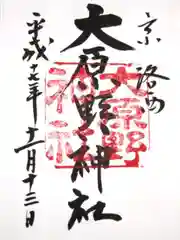 京洛西
大原野神社
大原野神社
平成十七年十二月十三日